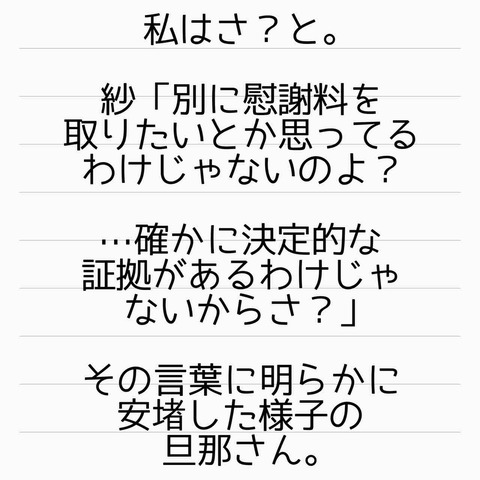 私はさ？と。
紗「別に慰謝料を
取りたいとか思ってる
わけじゃないのよ？
…確かに決定的な
証拠があるわけじゃ
ないからさ？」
その言葉に明らかに
安堵した様子の
旦那さん。